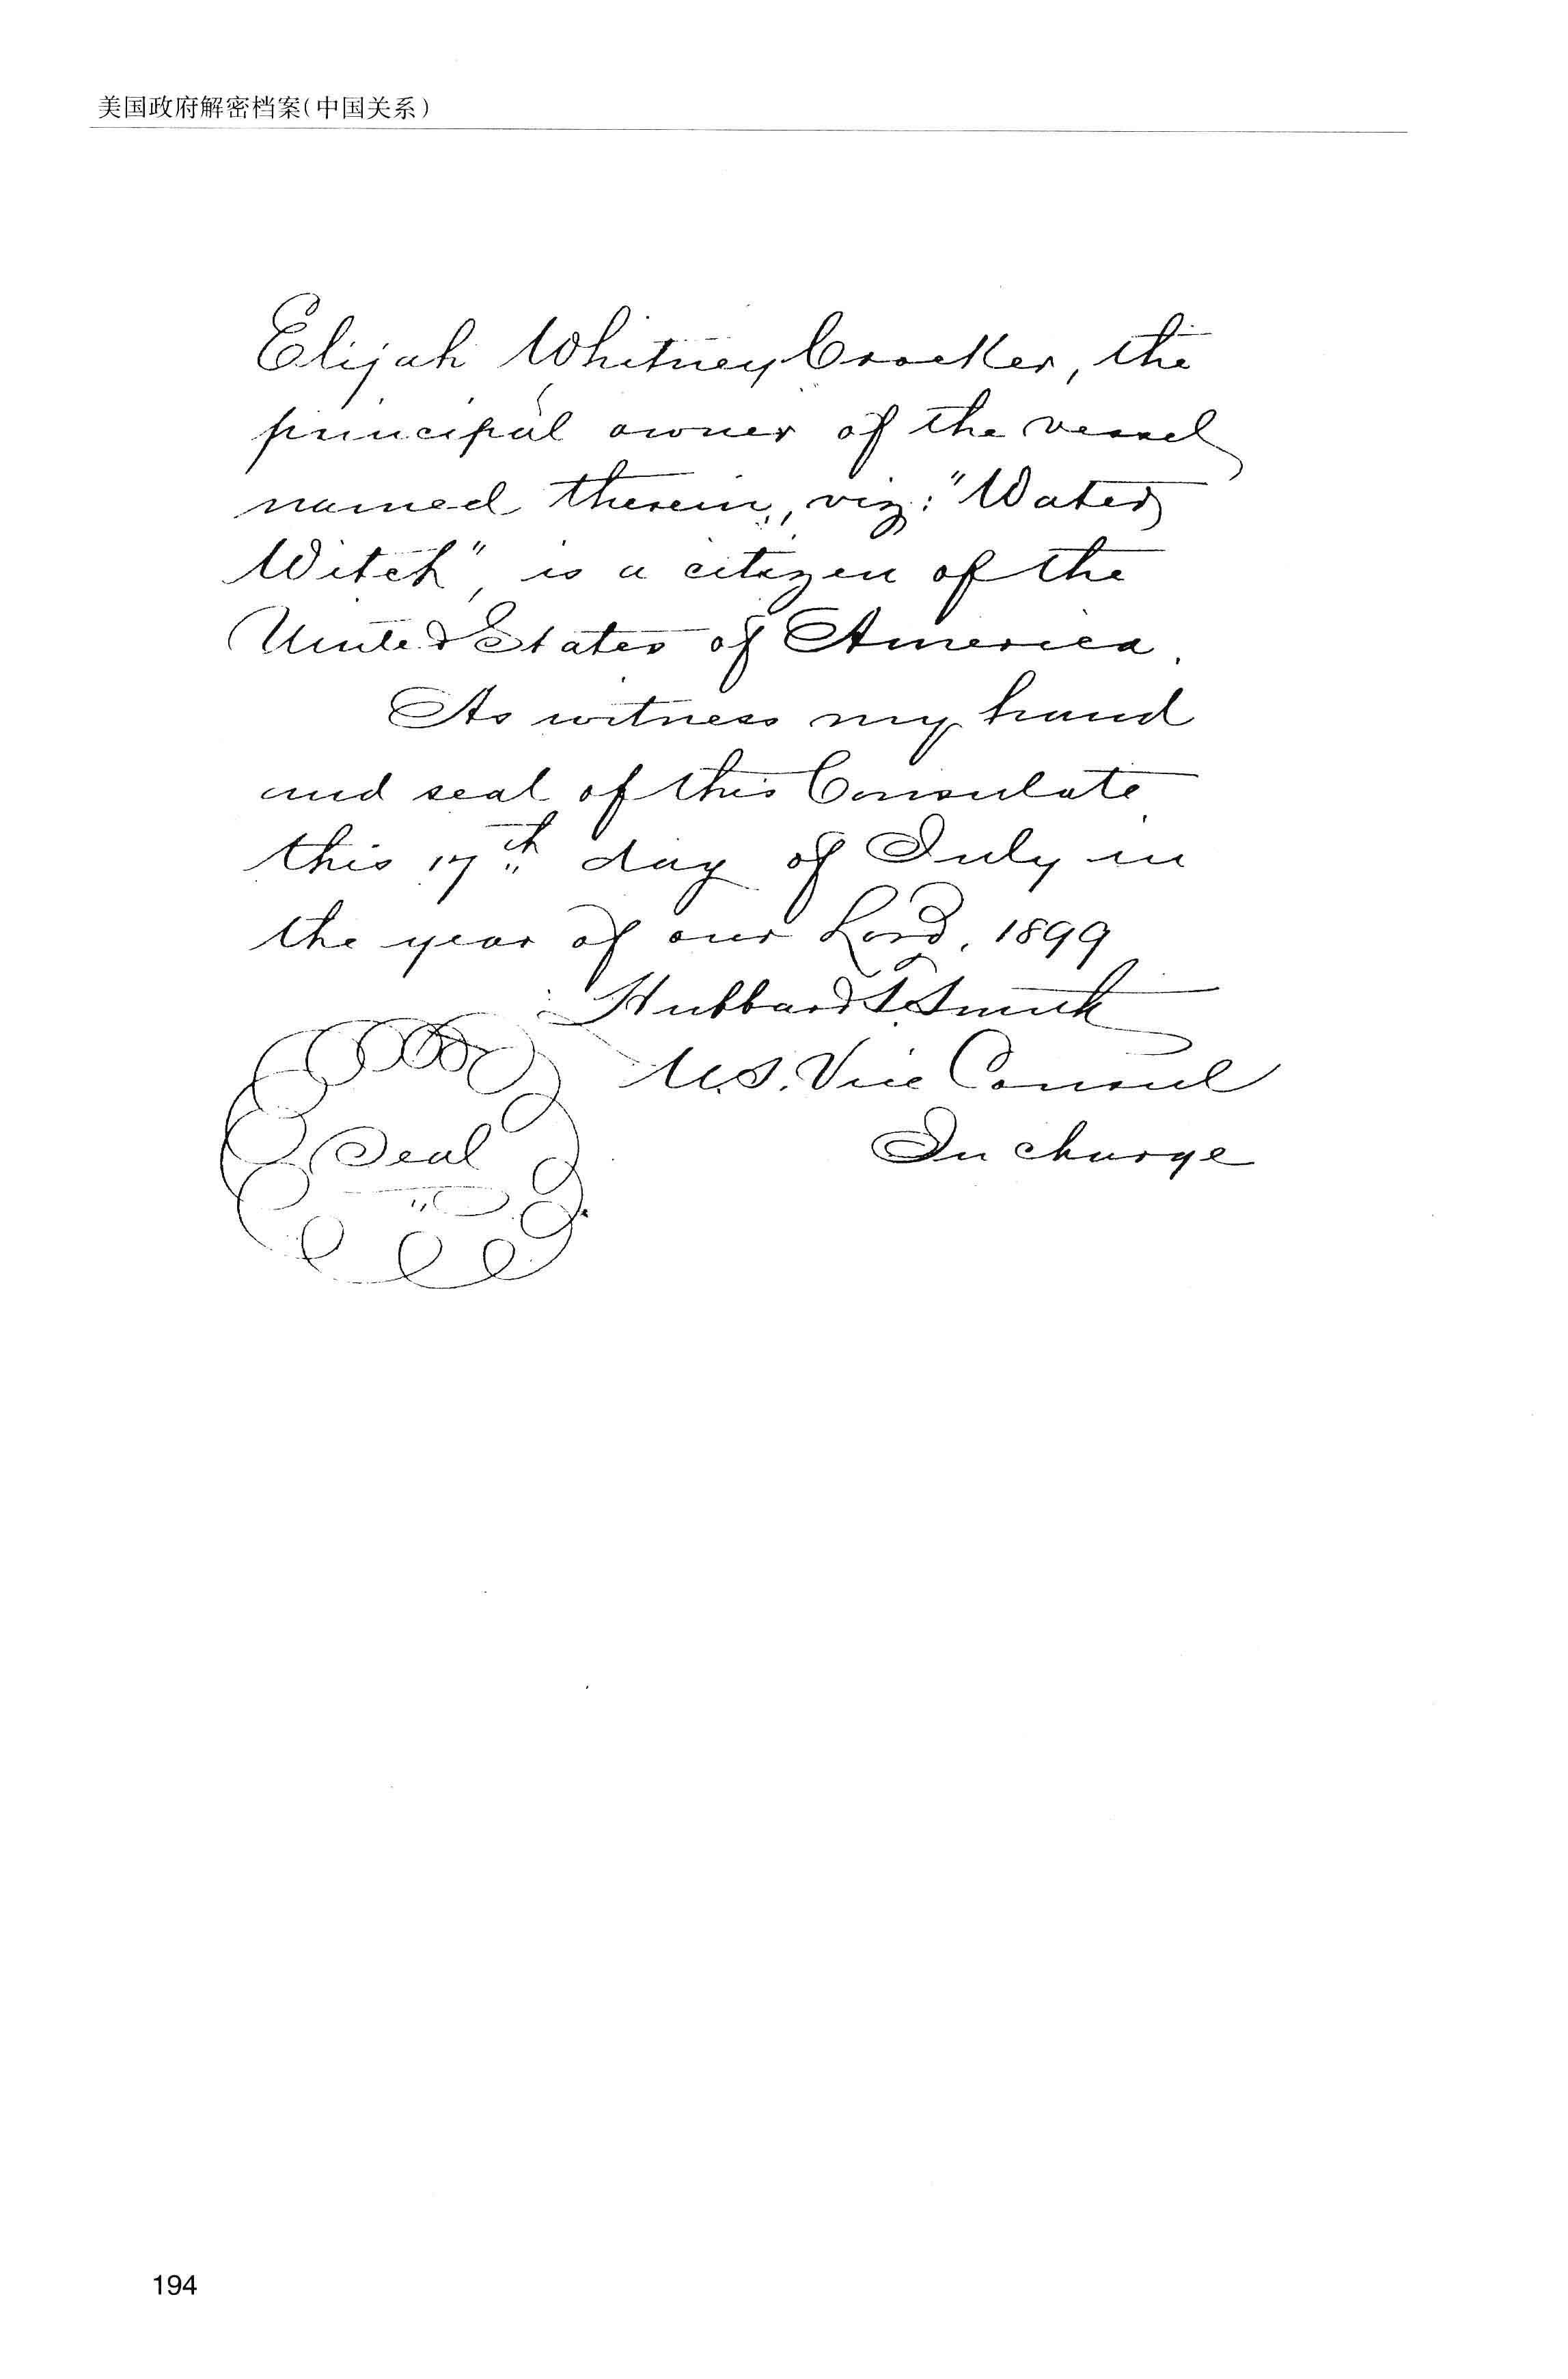 美国政府解密档案(中国关系)
Elijah Whitney Crocker, the
principal owner of the vessel
named therein, viz: "Water
Witch", is a citizen of the
United States of America.
As witness my hand
and seal of this Consulate
this 17th day of July in
the year of our Lord, 1899
Hubbard T. Smith
U.S. Vice Consul
In charge
Seal
194